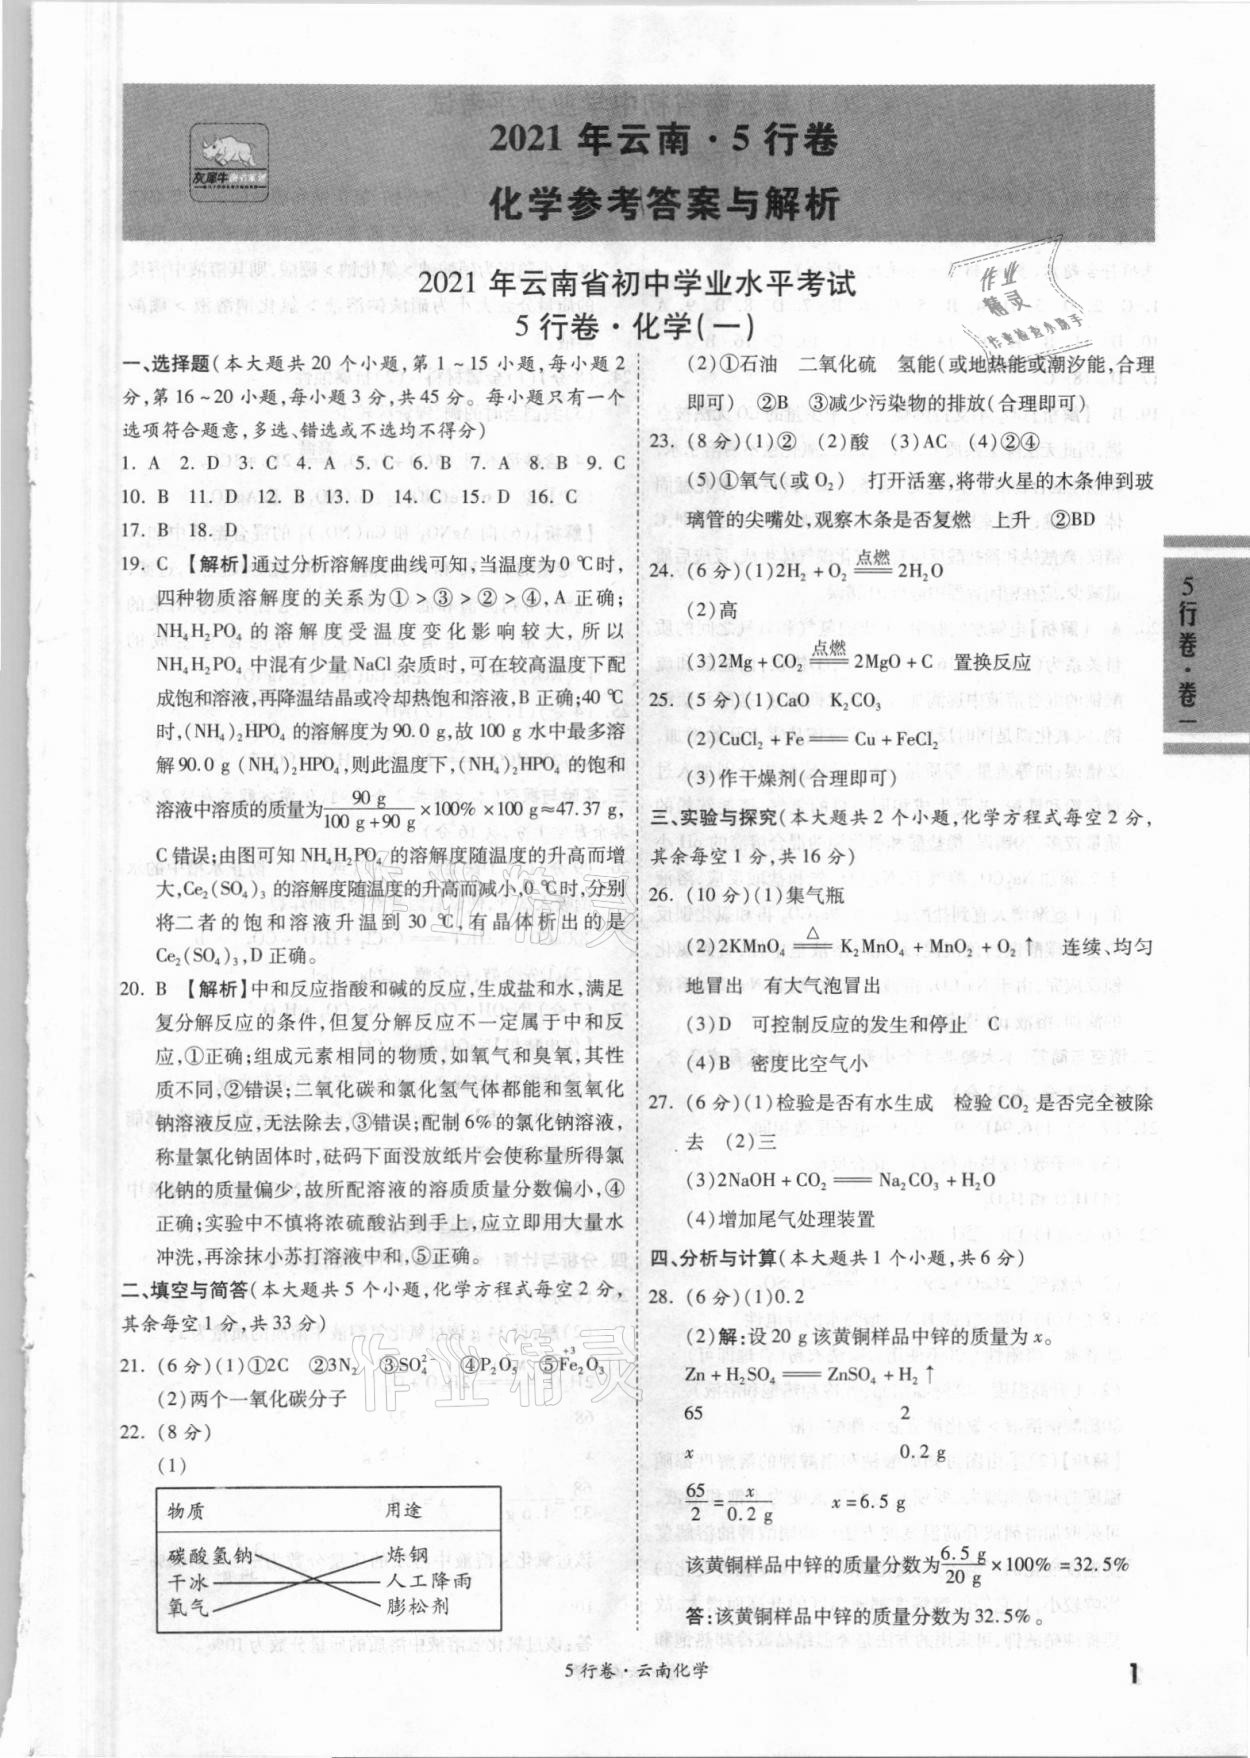 2021 年云南·5 行卷
化学参考答案与解析
灰犀牛
2021 年云南省初中学业水平考试
5 行卷·化学(一)
作业
精灵
作业检查小助手
一、选择题(本大题共 20 个小题,第 1～15 小题,每小题 2
分,第 16～20 小题,每小题 3 分,共 45 分。每小题只有一个
选项符合题意,多选、错选或不选均不得分)
1. A 2. D 3. C 4. A 5. C 6. B 7. A 8. B 9. C
10. B 11. D 12. B 13. D 14. C 15. D 16. C
17. B 18. D
19. C 【解析】通过分析溶解度曲线可知,当温度为 0 ℃时,
四种物质溶解度的关系为①>③>②>④,A 正确;
NH₄H₂PO₄ 的溶解度受温度变化影响较大,所以
NH₄H₂PO₄ 中混有少量 NaCl 杂质时,可在较高温度下配
成饱和溶液,再降温结晶或冷却热饱和溶液,B 正确;40 ℃
时,(NH₄)₂HPO₄ 的溶解度为 90.0 g,故 100 g 水中最多溶
解 90.0 g (NH₄)₂HPO₄,则此温度下,(NH₄)₂HPO₄ 的饱和
溶液中溶质的质量为 90 g/(100 g+90 g) ×100% ×100 g≈47.37 g,
C 错误;由图可知 NH₄H₂PO₄ 的溶解度随温度的升高而增
大,Ce₂(SO₄)₃ 的溶解度随温度的升高而减小,0 ℃时,分别
将二者的饱和溶液升温到 30 ℃,有晶体析出的是
Ce₂(SO₄)₃,D 正确。
20. B 【解析】中和反应指酸和碱的反应,生成盐和水,满足
复分解反应的条件,但复分解反应不一定属于中和反
应,①正确;组成元素相同的物质,如氧气和臭氧,其性
质不同,②错误;二氧化碳和氯化氢气体都能和氢氧化
钠溶液反应,无法除去,③错误;配制 6%的氯化钠溶液,
称量氯化钠固体时,砝码下面没放纸片会使称量所得氯
化钠的质量偏少,故所配溶液的溶质质量分数偏小,④
正确;实验中不慎将浓硫酸沾到手上,应立即用大量水
冲洗,再涂抹小苏打溶液中和,⑤正确。
二、填空与简答(本大题共 5 个小题,化学方程式每空 2 分,
其余每空 1 分,共 33 分)
21. (6 分)(1)①2C ②3N₂ ③SO₄²⁻ ④P₂O₅ ⑤Fe₂O₃ (+3)
(2)两个一氧化碳分子
22. (8 分)
(1)
物质 用途
碳酸氢钠 炼钢
干冰 人工降雨
氧气 膨松剂
(2)①石油 二氧化硫 氢能(或地热能或潮汐能,合理
即可) ②B ③减少污染物的排放(合理即可)
23. (8 分)(1)② (2)酸 (3)AC (4)②④
(5)①氧气(或 O₂) 打开活塞,将带火星的木条伸到玻
璃管的尖嘴处,观察木条是否复燃 上升 ②BD
24. (6 分)(1)2H₂ + O₂ ══点燃══ 2H₂O
(2)高
(3)2Mg + CO₂ ══点燃══ 2MgO + C 置换反应
25. (5 分)(1)CaO K₂CO₃
(2)CuCl₂ + Fe ══ Cu + FeCl₂
(3)作干燥剂(合理即可)
三、实验与探究(本大题共 2 个小题,化学方程式每空 2 分,
其余每空 1 分,共 16 分)
26. (10 分)(1)集气瓶
(2)2KMnO₄ ══△══ K₂MnO₄ + MnO₂ + O₂↑ 连续、均匀
地冒出 有大气泡冒出
(3)D 可控制反应的发生和停止 C
(4)B 密度比空气小
27. (6 分)(1)检验是否有水生成 检验 CO₂ 是否完全被除
去 (2)三
(3)2NaOH + CO₂ ══ Na₂CO₃ + H₂O
(4)增加尾气处理装置
四、分析与计算(本大题共 1 个小题,共 6 分)
28. (6 分)(1)0.2
(2)解:设 20 g 该黄铜样品中锌的质量为 x。
Zn + H₂SO₄ ══ ZnSO₄ + H₂↑
65 2
x 0.2 g
65/2 = x/0.2 g x = 6.5 g
该黄铜样品中锌的质量分数为 6.5 g/20 g ×100% = 32.5%
答:该黄铜样品中锌的质量分数为 32.5%。
5 行卷·卷一
作业精灵
作业精灵
5 行卷·云南化学
1